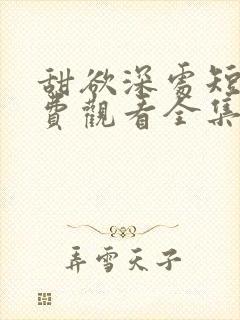 甜欲深處短
費觀看全集
弄雪天子